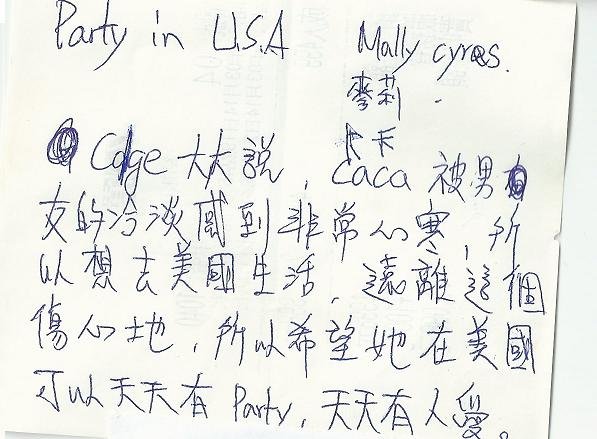 Party in U.S.A Mally cyres.
麥莉.
卡卡
Cage 大大說, caca 被男
友的冷淡感到非常心寒, 所
以想去美國生活, 遠離這個
傷心地, 所以希望她在美國
可以天天有 Party, 天天有人愛。